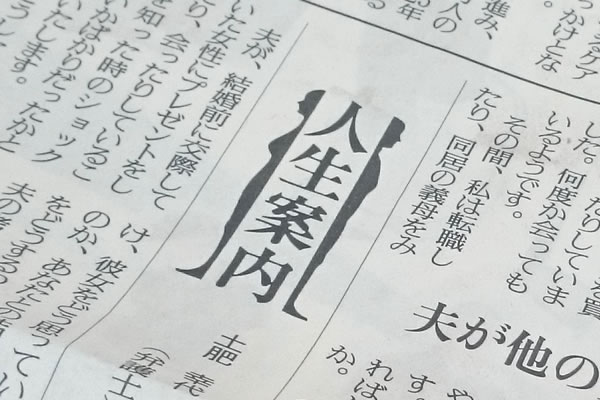 進み、
人の
年
る
つかけとな
。
るケア
たりしていま
した。何度か会っても
いるようです。
その間、私は転職し
たり、同居の義母をみ
夫が他の
す。
れば
か。
人生案内
土肥
(弁護士
夫が、結婚前に交際して
いた女性にプレゼントをし
たり、会ったりしているこ
を知った時のショック
いかばかりだったかと
いたします。
け、彼女をどう思っ
のか、あなたとの
をどうする
夫の
てい